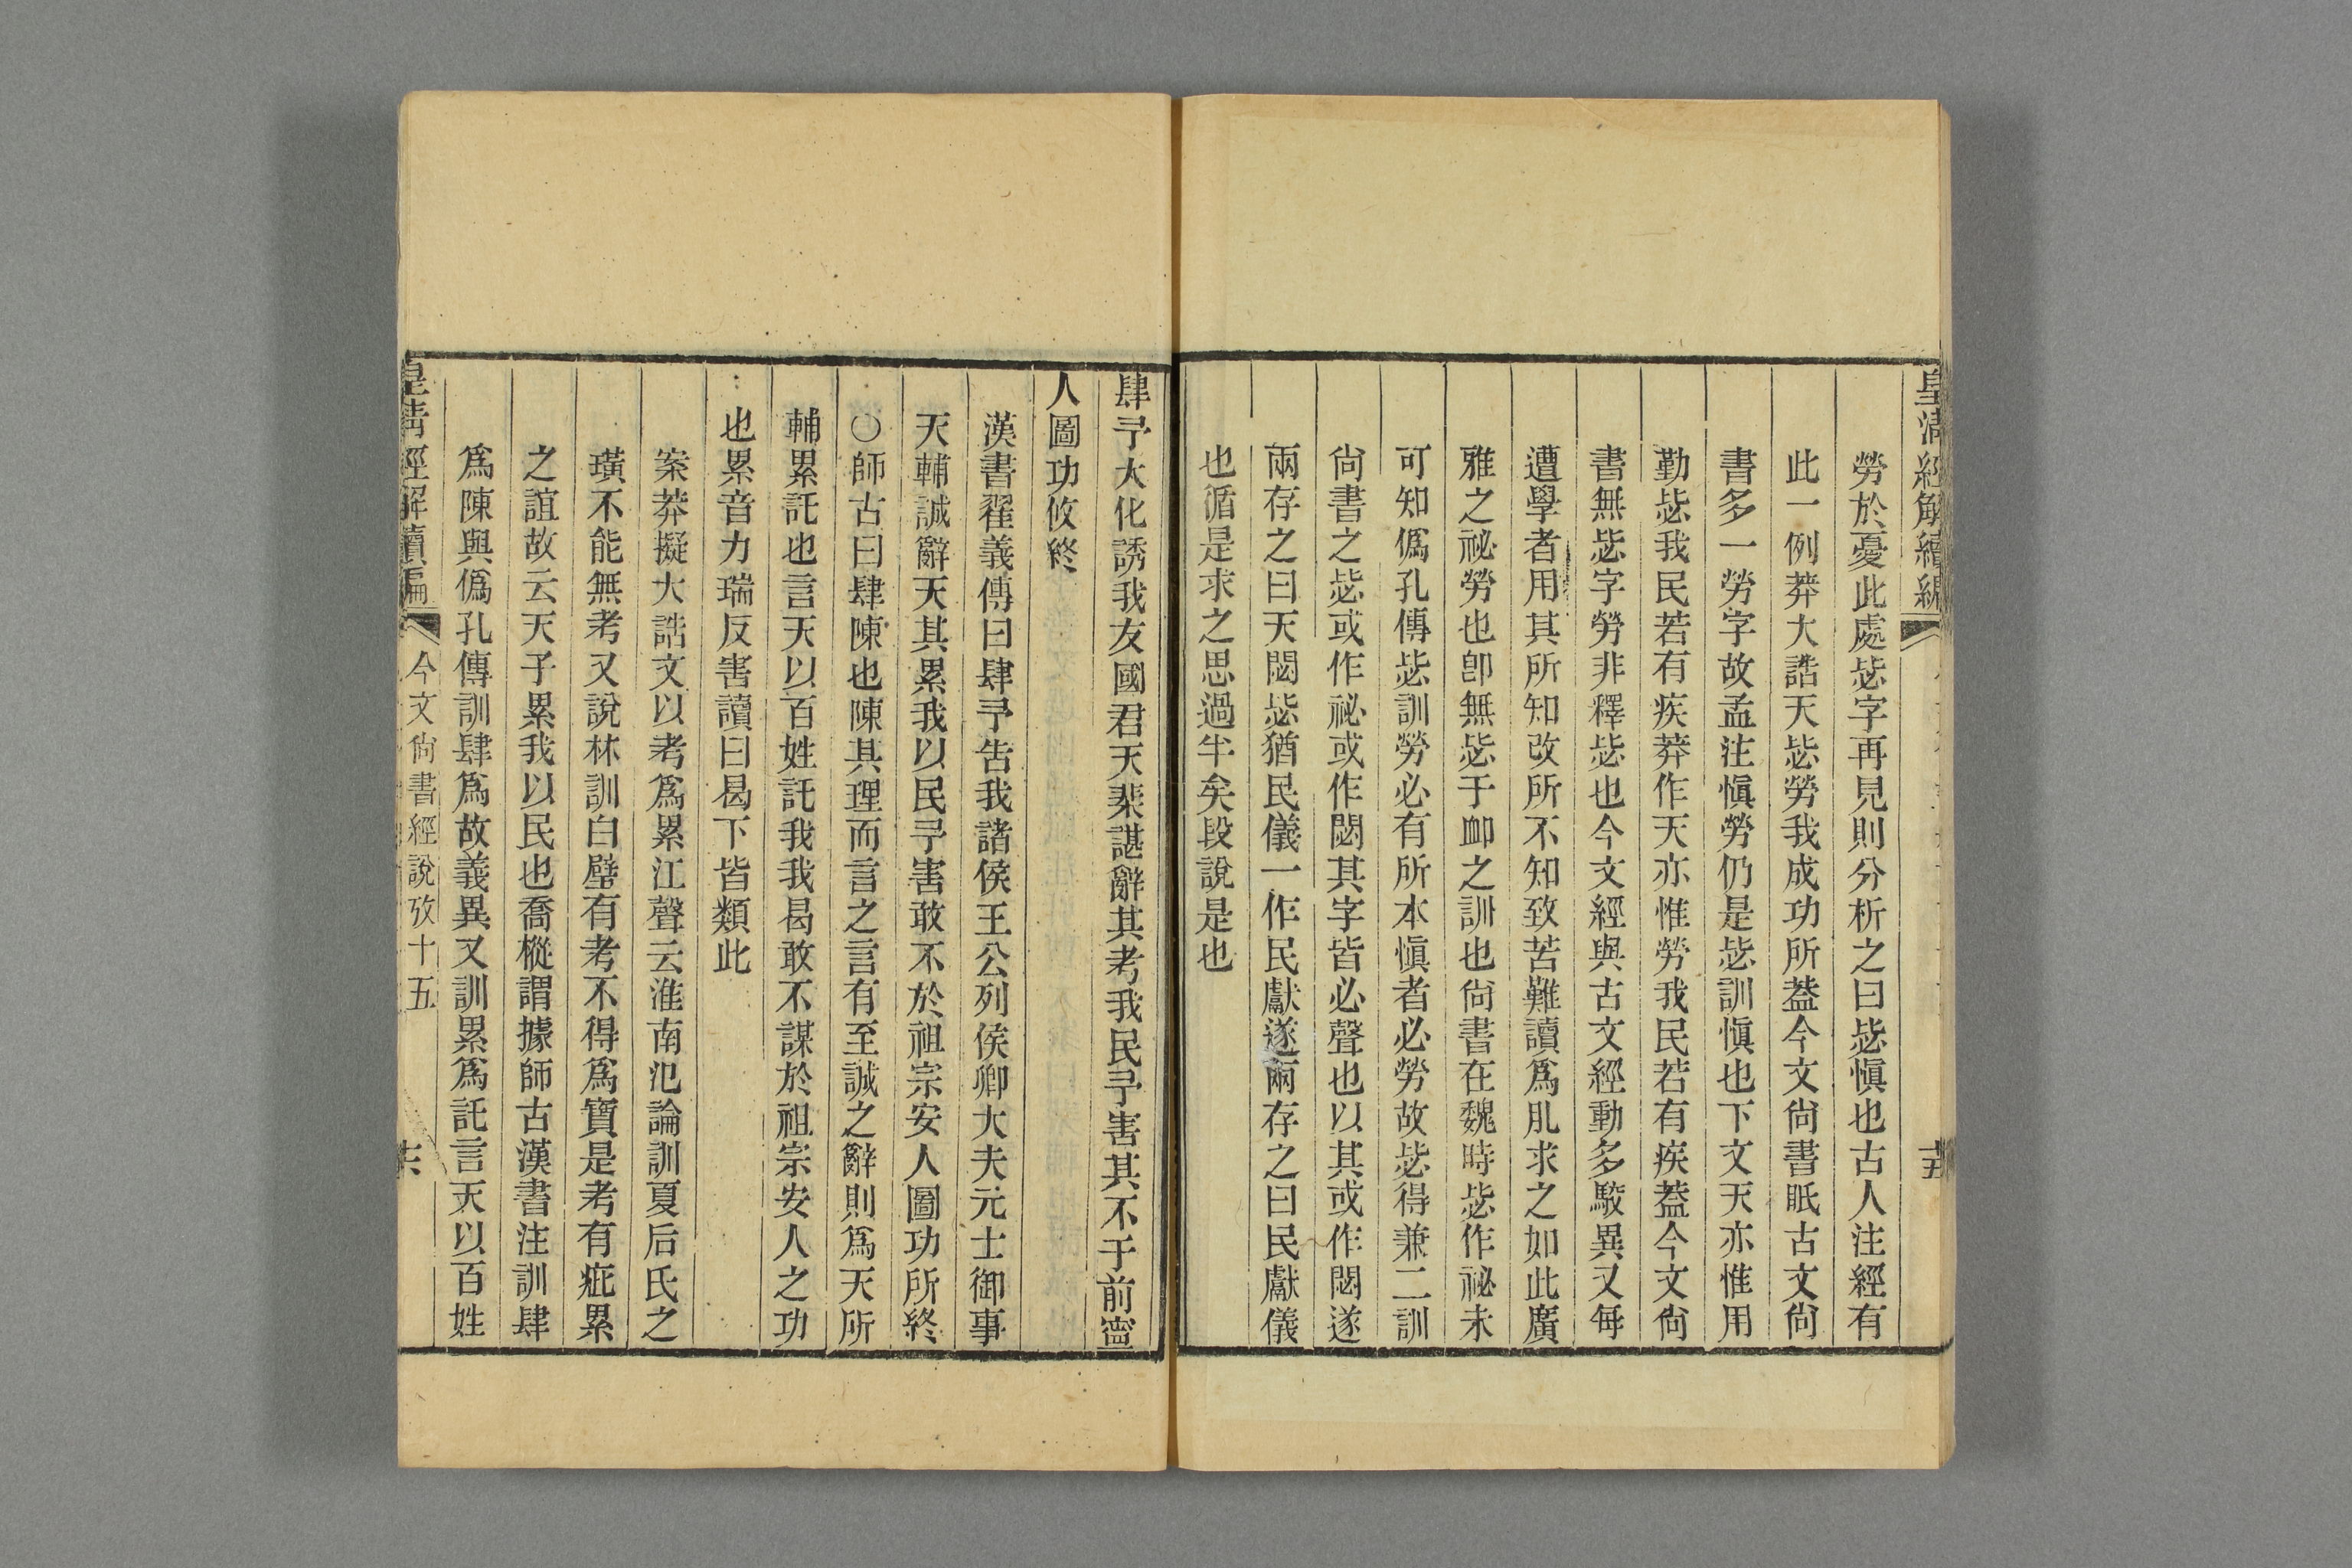 皇清經解續編
十五
勞於憂此處毖字再見則分析之曰毖慎也古人注經有
此一例莽大誥天毖勞我成功所葢今文尙書眠古文尙
書多一勞字故孟注慎勞仍是毖訓慎也下文天亦惟用
勤毖我民若有疾莽作天亦惟勞我民若有疾葢今文尙
書無毖字勞非釋毖也今文經與古文經動多駮異又每
遭學者用其所知改所不知致苦難讀爲肌求之如此廣
雅之祕勞也卽無毖于卹之訓也尙書在魏時毖作祕未
可知僞孔傳毖訓勞必有所本慎者必勞故毖得兼二訓
尙書之毖或作祕或作閟其字皆必聲也以其或作閟遂
兩存之曰天閟毖猶民儀一作民獻遂兩存之曰民獻儀
也循是求之思過半矣段說是也
肆予大化誘我友國君天棐諶辭其考我民予害其不于前寧
人圖功攸終
漢書翟義傳曰肆予告我諸侯王公列侯卿大夫元士御事
天輔誠辭天其累我以民予害敢不於祖宗安人圖功所終
〇師古曰肆陳也陳其理而言之言有至誠之辭則爲天所
輔累託也言天以百姓託我我曷敢不謀於祖宗安人之功
也累音力瑞反害讀曰曷下皆類此
案莽擬大誥文以考爲累江聲云淮南氾論訓夏后氏之
璜不能無考又說林訓白璧有考不得爲寶是考有疵累
之誼故云天予累我以民也喬樅謂據師古漢書注訓肆
爲陳與僞孔傳訓肆爲故義異又訓累爲託言天以百姓
皇清經解續編
今文尙書經說攷十五
十六